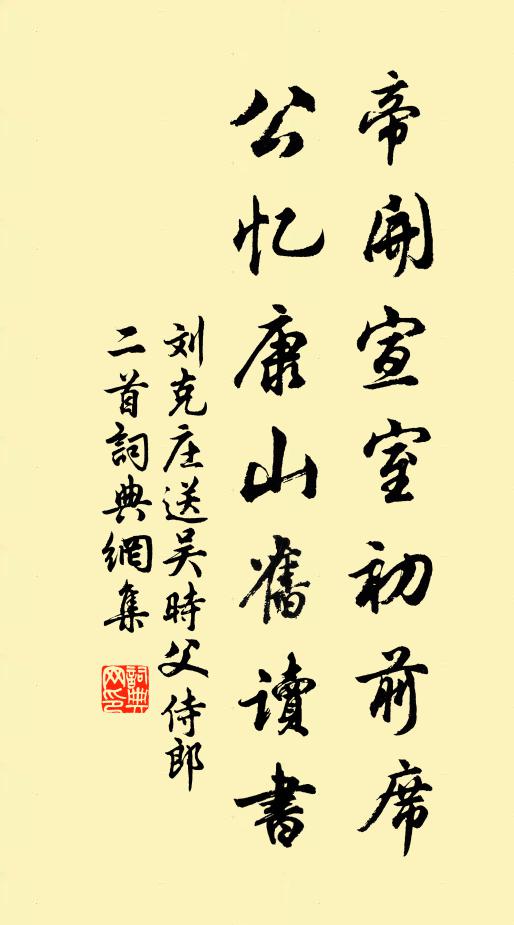 帝開宣室初前席
公忆康山舊讀書
刘克庄送吴時父侍郎
二首詞典網集
詞典网印